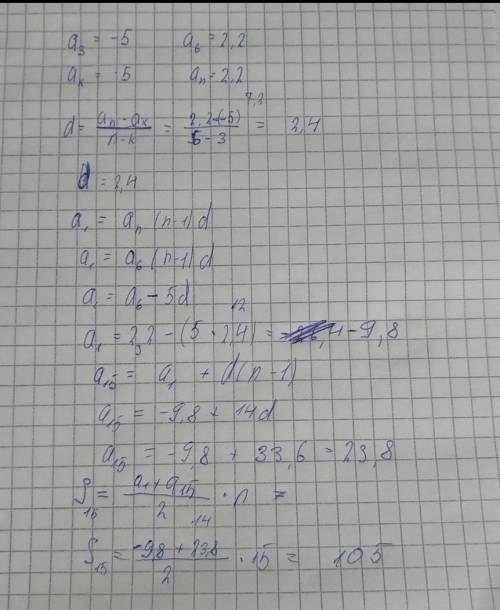 a₃ = -5 a₆ = 2,2
aₖ = -5 aₙ = 2,2
d = (aₙ - aₖ)/(n - k) = (2,2-(-5))/(6 - 3) 7,2 = 2,4
d = 2,4
a₁ = aₙ (n-1)d
a₁ = a₆ (n-1)d
a₁ = a₆ - 5d
a₁ = 2,2 - (5 · 2,4) 12 = -9,8
a₁₅ = a₁ + d(n-1)
a₁₅ = -9,8 + 14d
a₁₅ = -9,8 + 33,6 = 23,8
S₁₅ = (a₁+a₁₅)/2 · n =
14
S₁₅ = (-9,8 + 23,8)/2 · 15 = 105